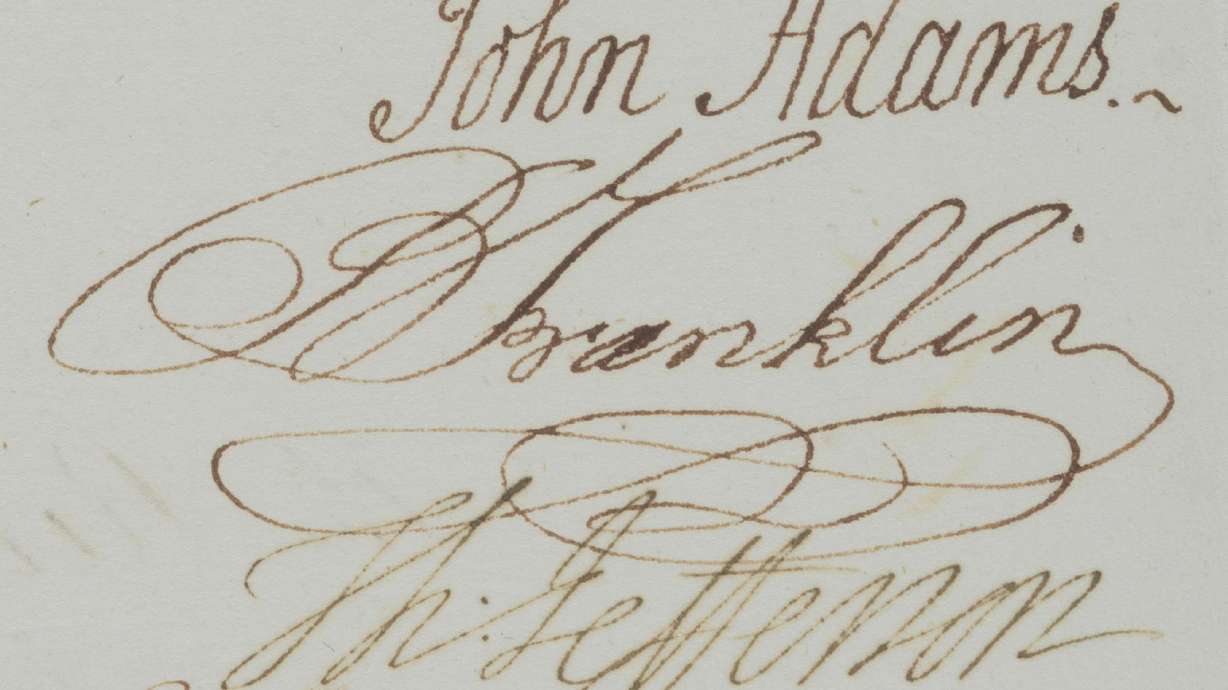 John Adams.
B Franklin
Th: Jefferson